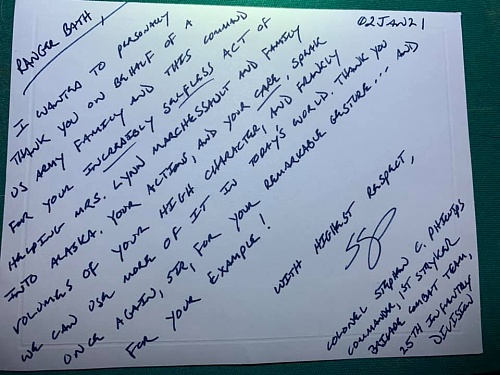 02JAN21
RANGER BATH,
I WANTED TO PERSONALLY
THANK YOU ON BEHALF OF A
US ARMY FAMILY AND THIS COMMAND
FOR YOUR INCREDIBLY SELFLESS ACT OF
HELPING MRS. LYNN MARCHESSAULT AND FAMILY
INTO ALASKA. YOUR ACTIONS, AND YOUR CARE, SPEAK
VOLUMES OF YOUR HIGH CHARACTER, AND FRANKLY
WE CAN USE MORE OF IT IN TODAY'S WORLD. THANK YOU
ONCE AGAIN, SIR, FOR YOUR REMARKABLE GESTURE... AND
FOR YOUR EXAMPLE!
WITH HIGHEST RESPECT,
COLONEL STEPHEN C. PHILLIPS
COMMANDER, 1ST STRYKER
BRIGADE COMBAT TEAM,
25TH INFANTRY
DIVISION